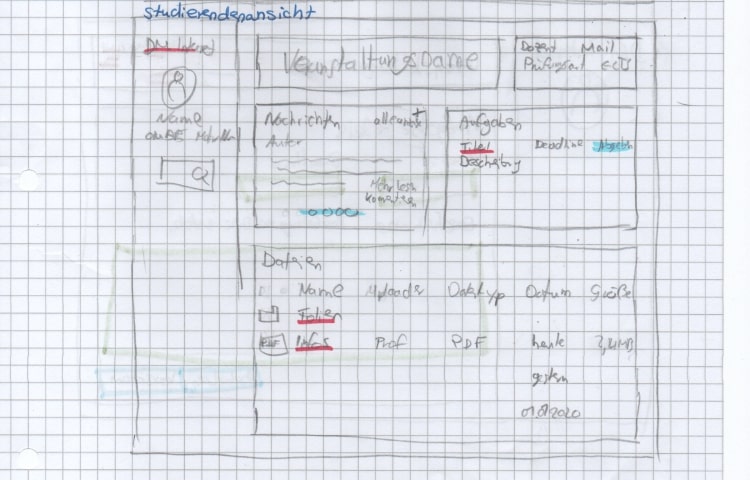 Studierendenansicht
Name
Veranstaltungsname
Dozent Mail
Prüfungsart ECTS
Nachrichten
Autor
Mehr lesen
Aufgaben
Titel Deadline Abgeben
Beschreibung
Dateien
Name Uploader Dateityp Datum Größe
Folien
PDF Infos Prof PDF heute
gestern
01.08.2020